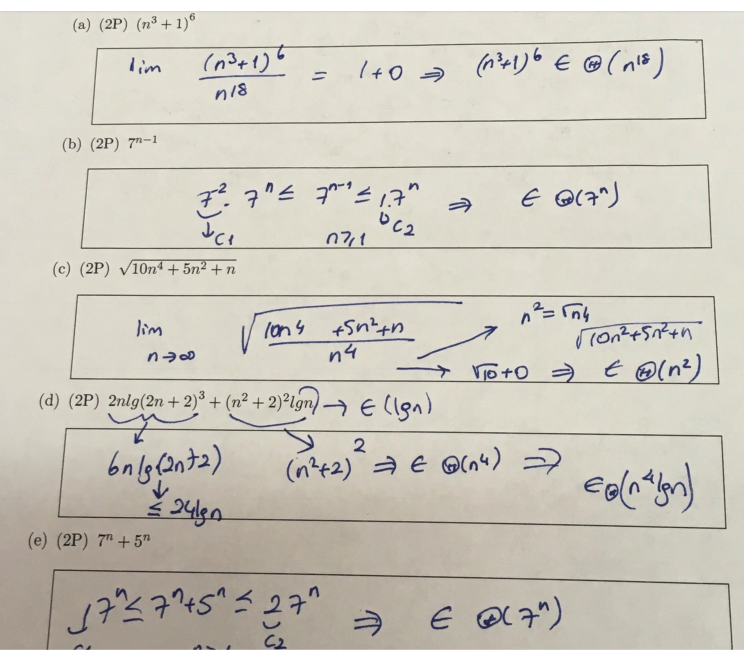 (a) (2P) (n³ + 1)⁶
lim (n³+1)⁶ / n18 = 1+0 ⇒ (n³+1)⁶ ∈ Θ(n¹⁸)
(b) (2P) 7ⁿ⁻¹
7⁻². 7ⁿ ≤ 7ⁿ⁻¹ ≤ 1.7ⁿ ⇒ ∈ Θ(7ⁿ)
↓C1 n≥1 C2
(c) (2P) √(10n⁴ + 5n² + n)
lim n→∞ √((10n4 +5n²+n) / n4)
n² = √n4
√(10n²+5n²+n)
→ √10+0 ⇒ ∈ Θ(n²)
(d) (2P) 2nlg(2n + 2)³ + (n² + 2)²lgn → ∈ (lgn)
6nlg(2n+2) (n²+2)² ⇒ ∈ Θ(n4) ⇒ ∈Θ(n⁴lgn)
≤ 24lgn
(e) (2P) 7ⁿ + 5ⁿ
1 7ⁿ ≤ 7ⁿ+5ⁿ ≤ 2 7ⁿ ⇒ ∈ Θ(7ⁿ)
C2